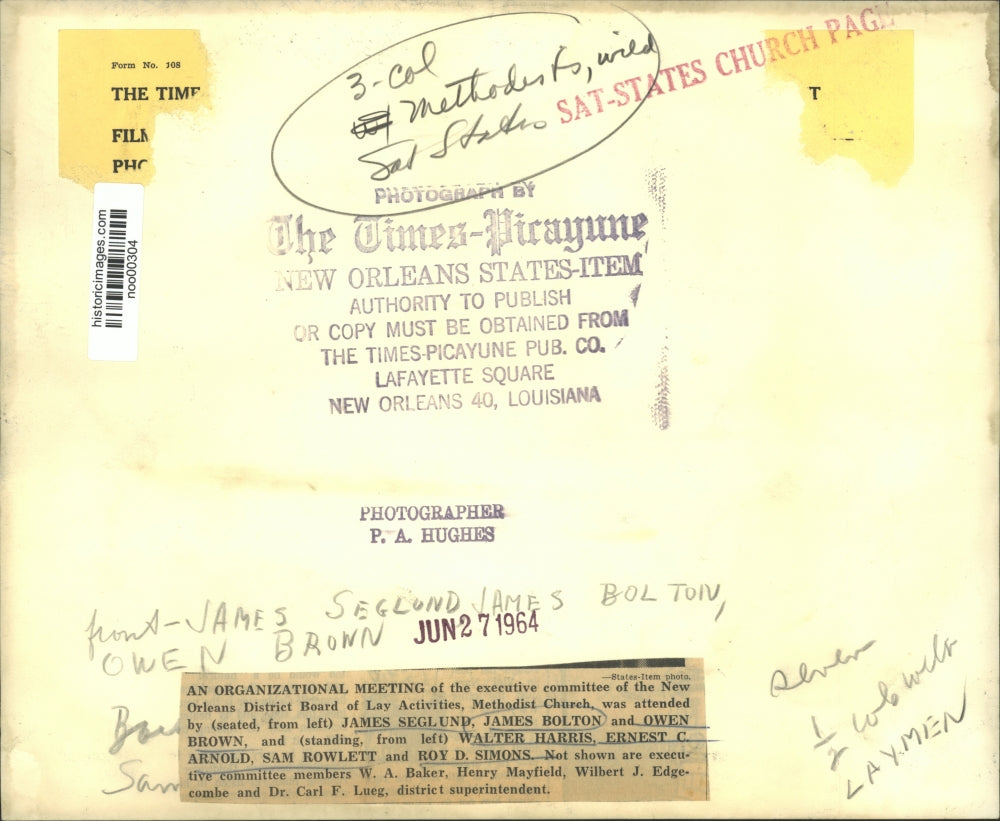 Form No. 108
THE TIME
FILM
PHO
T
3-col
Methodists, wild
Sat States
SAT-STATES CHURCH PAGE
historicimages.com
noo00304
PHOTOGRAPH BY
The Times-Picayune
NEW ORLEANS STATES-ITEM
AUTHORITY TO PUBLISH
OR COPY MUST BE OBTAINED FROM
THE TIMES-PICAYUNE PUB. CO.
LAFAYETTE SQUARE
NEW ORLEANS 40, LOUISIANA
PHOTOGRAPHER
P. A. HUGHES
front - JAMES SEGLUND JAMES BOLTON,
OWEN BROWN
JUN 27 1964
Bac
Sam
—States-Item photo.
AN ORGANIZATIONAL MEETING of the executive committee of the New
Orleans District Board of Lay Activities, Methodist Church, was attended
by (seated, from left) JAMES SEGLUND, JAMES BOLTON and OWEN
BROWN, and (standing, from left) WALTER HARRIS, ERNEST C.
ARNOLD, SAM ROWLETT and ROY D. SIMONS. Not shown are execu-
tive committee members W. A. Baker, Henry Mayfield, Wilbert J. Edge-
combe and Dr. Carl F. Lueg, district superintendent.
seven
1/2
LAYMEN